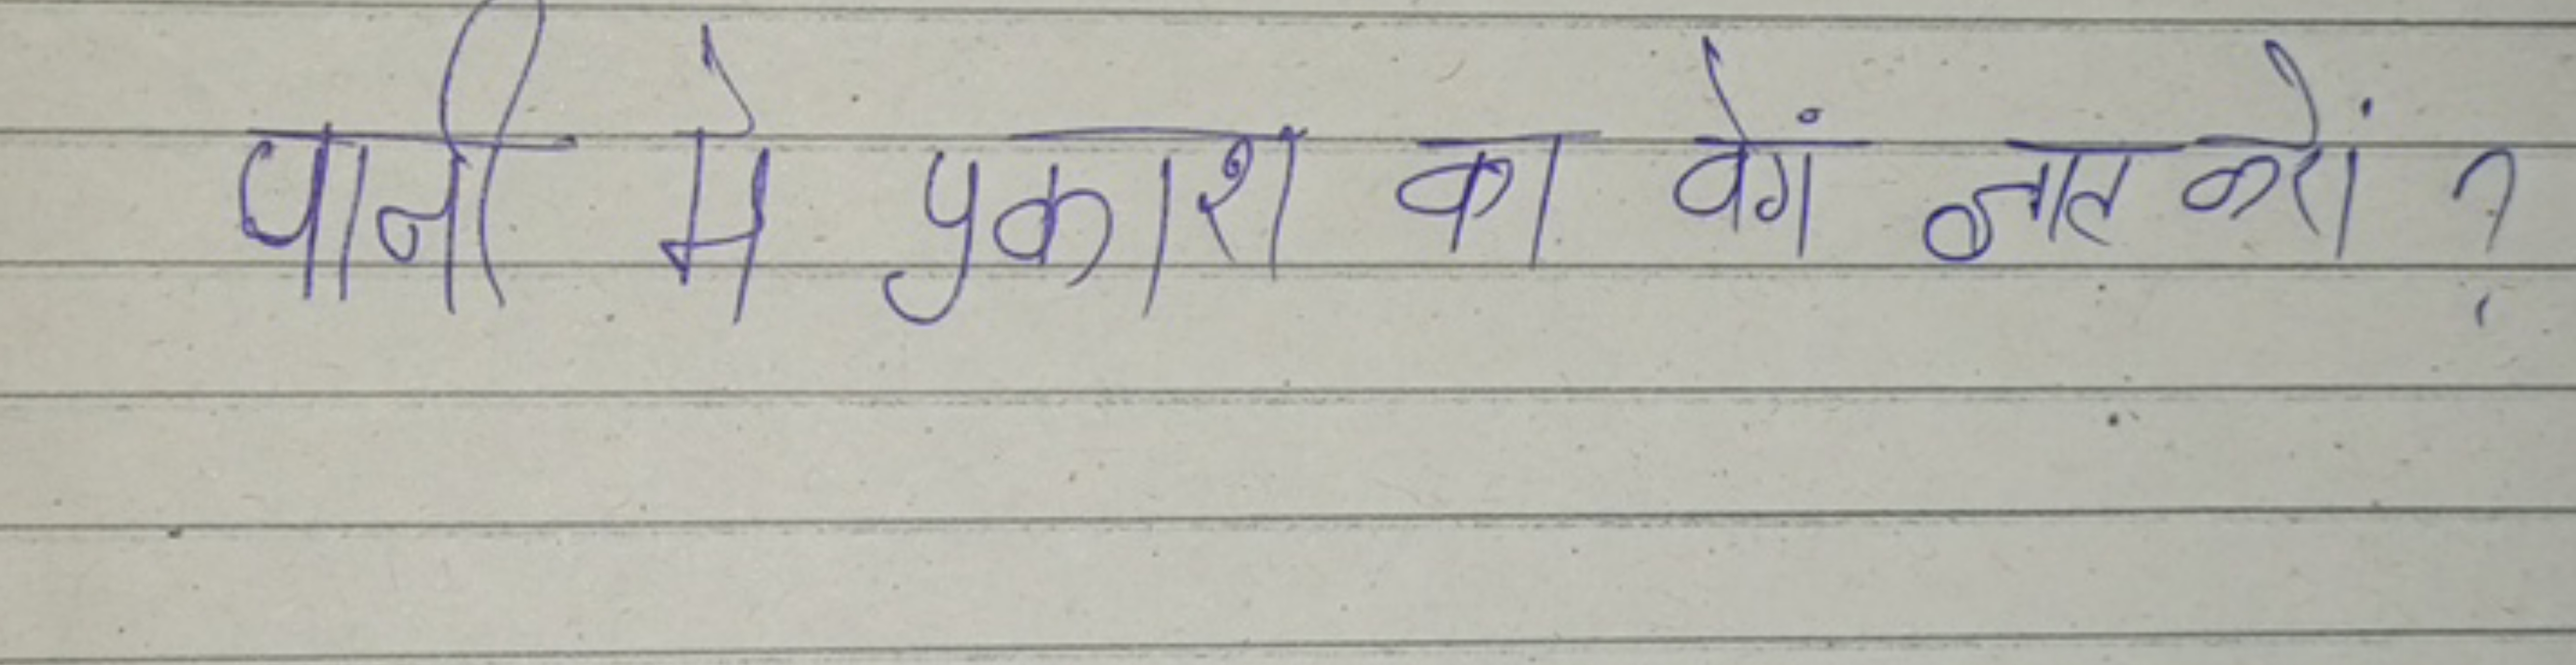 पानी मे प्रकाश का वेगं ज्ञात करों ?